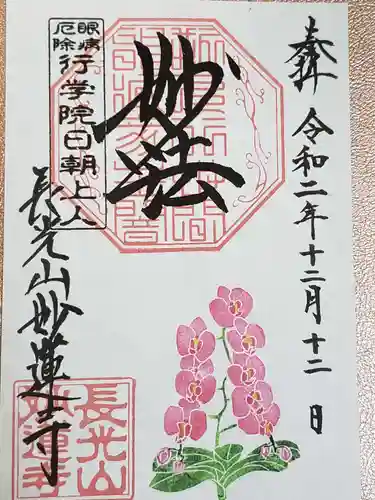 奉拝 令和二年十二月十二日
妙法
眼病
厄除
行学院日朝上人
長光山妙蓮寺
長光山
妙蓮寺